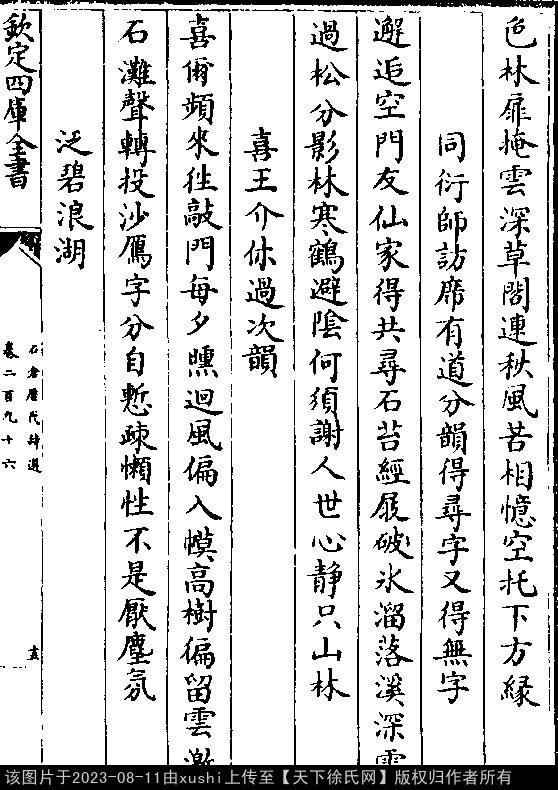 色林扉掩雲深草閣連秋風苦相憶空托下方緣
同衍師訪席有道分韻得尋字又得無字
邂逅空門友仙家得共尋石苔經屐破氷溜落溪深雲
過松分影林寒鶴避陰何須謝人世心靜只山林
喜王介休過次韻
喜爾頻來徃敲門每夕曛迴風偏入幙高樹偏留雲激
石灘聲轉投沙鴈字分自慙疎懶性不是厭塵氛
泛碧浪湖
欽定四庫全書
石倉歷代詩選
卷二百九十六
该图片于2023-08-11由xushi上传至【天下徐氏网】版权归作者所有